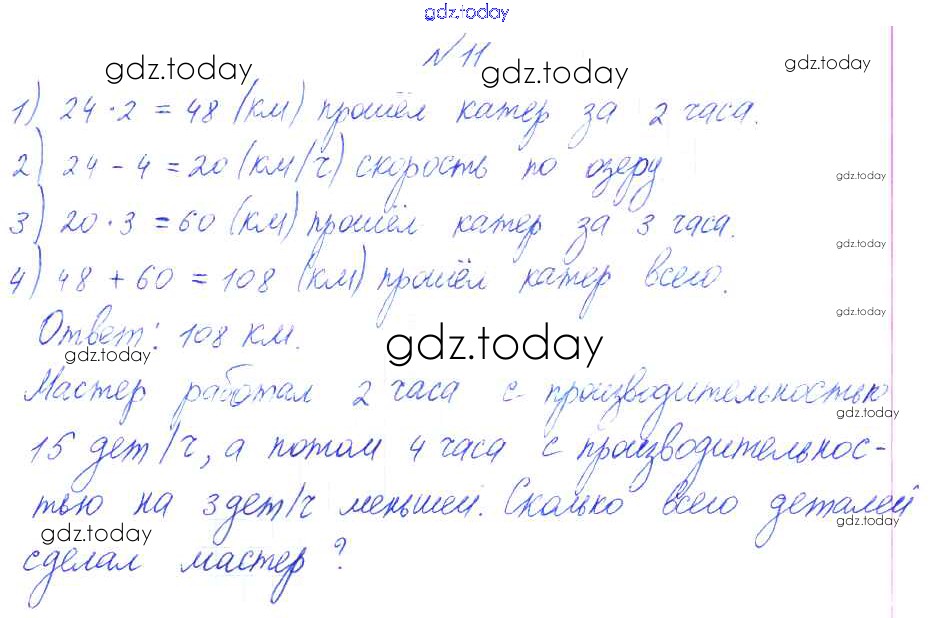 gdz.today
№11
gdz.today gdz.today gdz.today
1) 24 · 2 = 48 (км) прошёл катер за 2 часа.
2) 24 - 4 = 20 (км/ч) скорость по озеру
gdz.today
3) 20 · 3 = 60 (км) прошёл катер за 3 часа.
gdz.today
4) 48 + 60 = 108 (км) прошёл катер всего.
gdz.today
Ответ: 108 км.
gdz.today gdz.today
Мастер работал 2 часа с производительностью
gdz.today
15 дет/ч, а потом 4 часа с производительнос-
тью на 3 дет/ч меньшей. Сколько всего деталей
gdz.today gdz.today
сделал мастер?